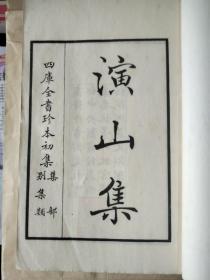 演山集
四庫全書珍本初集集部
別集類